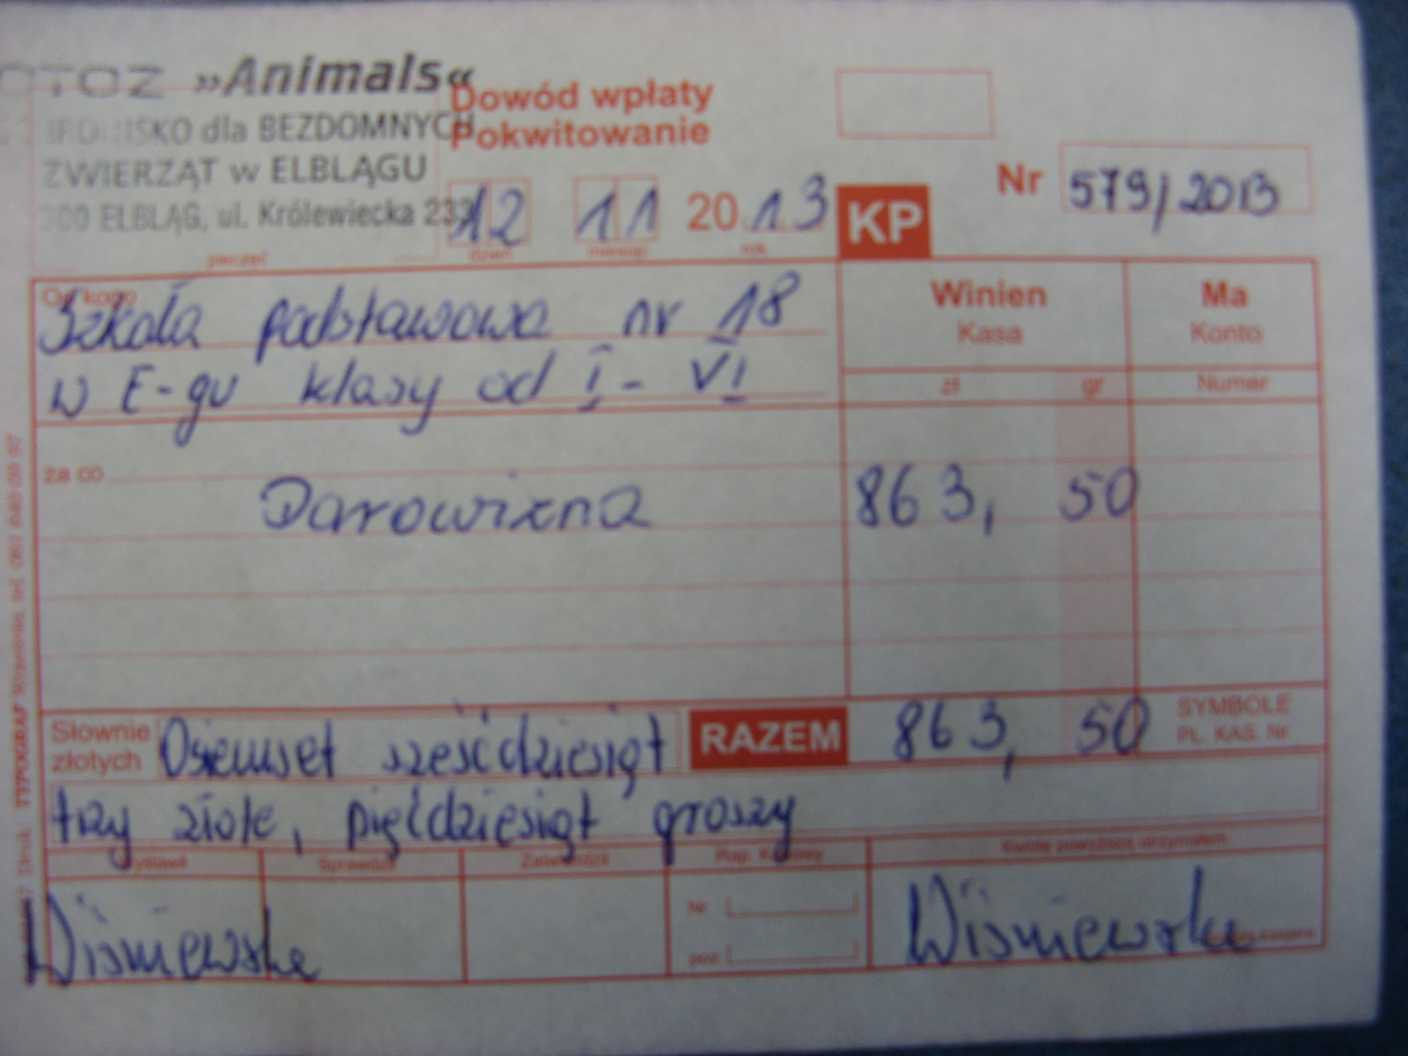 OTOZ »Animals«
SCHRONISKO dla BEZDOMNYCH
ZWIERZĄT w ELBLĄGU
300 ELBLĄG, ul. Królewiecka 233
pieczęć
Dowód wpłaty
Pokwitowanie
12 11 2013
dzień miesiąc rok
KP
Nr 579/2013
Od kogo
Szkoła podstawowa nr 18
w E-gu klasy od I - VI
Winien
Kasa
Ma
Konto
zł gr Numer
za co
Darowizna 863, 50
Słownie
złotych
Osiemset sześćdziesiąt
RAZEM 863, 50
SYMBOLE
PL. KAS. Nr
trzy złote, pięćdziesiąt groszy
Wystawił Sprawdził Zatwierdził Rap. Kasowy Kwotę powyższą otrzymałem
Nr
poz.
Wiśniewska Wiśniewska
TYPOGRAF